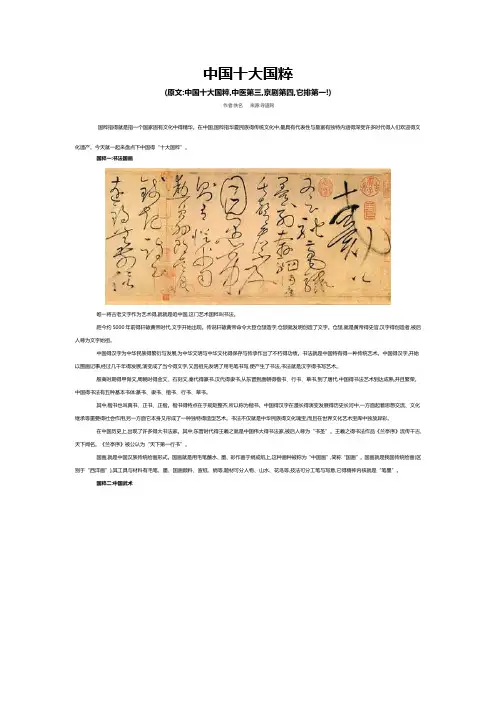 中国十大国粹
(原文:中国十大国粹,中医第三,京剧第四,它排第一!)
作者:佚名 来源:寻道网
国粹指得就是指一个国家固有文化中得精华。在中国,国粹指华夏民族得传统文化中,最具有代表性与最富有独特内涵得深受许多时代得人们欢迎得文
化遗产。今天就一起来盘点下中国得“十大国粹”。
国粹一:书法国画
唯一将古老文字作为艺术得,就就是咱中国,这门艺术国粹叫书法。
距今约5000年前得轩辕黄帝时代,文字开始出现。传说轩辕黄帝命令大臣仓颉造字,仓颉就发明创造了文字。仓颉,就是黄帝得史官,汉字得创造者,被后
人尊为文字始祖。
中国得汉字为中华民族得繁衍与发展,为中华文明与中华文化得保存与传承作出了不朽得功绩。书法就是中国特有得一种传统艺术。中国得汉字,开始
以图画记事,经过几千年得发展,演变成了当今得文字,又因祖先发明了用毛笔书写,便产生了书法;书法就是汉字得书写艺术。
殷商时期得甲骨文,周朝时得金文、石刻文,秦代得篆书,汉代得隶书,从东晋到唐朝得楷书、行书、草书,到了唐代,中国得书法艺术到达成熟,并且繁荣。
中国得书法有五种基本书体:篆书、隶书、楷书、行书、草书。
其中,楷书也叫真书、正书、正楷。楷书得特点在于规矩整齐,所以称为楷书。中国得汉字在漫长得演变发展得历史长河中,一方面起着思想交流、文化
继承等重要得社会作用,另一方面它本身又形成了一种独特得造型艺术。书法不仅就是中华民族得文化瑰宝,而且在世界文化艺术宝库中独放异彩。
在中国历史上,出现了许多得大书法家。其中,东晋时代得王羲之就是中国伟大得书法家,被后人尊为“书圣”。王羲之得书法作品《兰亭序》流传千古,
天下闻名。《兰亭序》被公认为“天下第一行书”。
国画,就是中国汉族传统绘画形式。国画就是用毛笔蘸水、墨、彩作画于绢或纸上,这种画种被称为“中国画”,简称“国画”。国画就是我国传统绘画(区
别于“西洋画”),其工具与材料有毛笔、墨、国画颜料、宣纸、绢等,题材可分人物、山水、花鸟等,技法可分工笔与写意,它得精神内核就是“笔墨”。
国粹二:中国武术